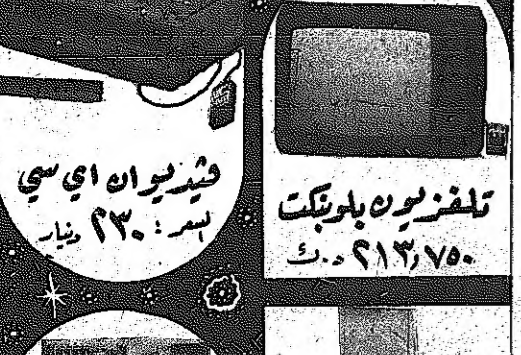 تلفزيون بلوبنكت
٢١٣,٧٥٠ د.ك
ڤيديو ان اي سي
السعر: ٢٣٠ دينار